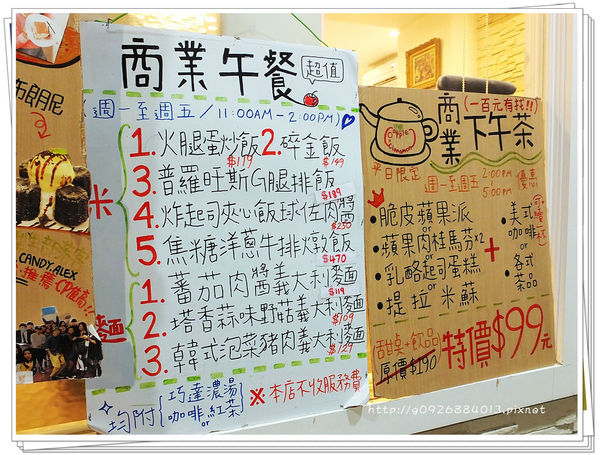 布朗尼
CANDY, ALEX
推薦 CP推高!!
商業午餐 超值
週一至週五 / 11:00AM-2:00PM
米
1. 火腿蛋炒飯 $179 2. 碎金飯 $149
3. 普羅旺斯G腿排飯 $189
4. 炸起司夾心飯球佐肉醬 $250
5. 焦糖洋蔥牛排燉飯 $470
麵
1. 蕃茄肉醬義大利麥麵 $119
2. 塔香蒜味野菇義大利麥麵 $109
3. 韓式泡菜豬肉義大利麥麵 $129
均附 巧達濃湯 or 咖啡紅茶
※本店不收服務費
商業下午茶 (一百元有找!!)
平日限定 週一至週五 2:00PM 5:00PM 優惠
•脆皮蘋果派
or
•蘋果肉桂馬芬x2
•乳酪起司蛋糕
•提拉米蘇
+
•美式咖啡
or
•各式茶品
可續杯
甜點+飲品
原價$190
特價$99元
http://g0926884013.pixnet